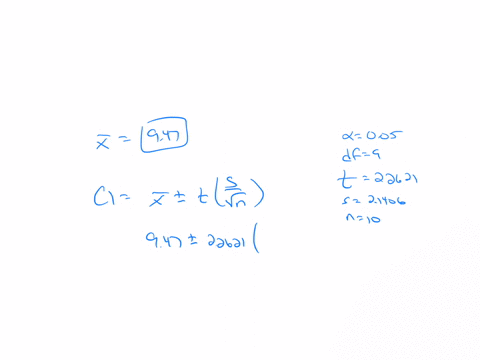 x̄ = 9.47
CI = x̄ ± t (s/√n)
9.47 ± 2.2621 (
α = 0.05
df = 9
t = 2.2621
s = 2.1406
n = 10